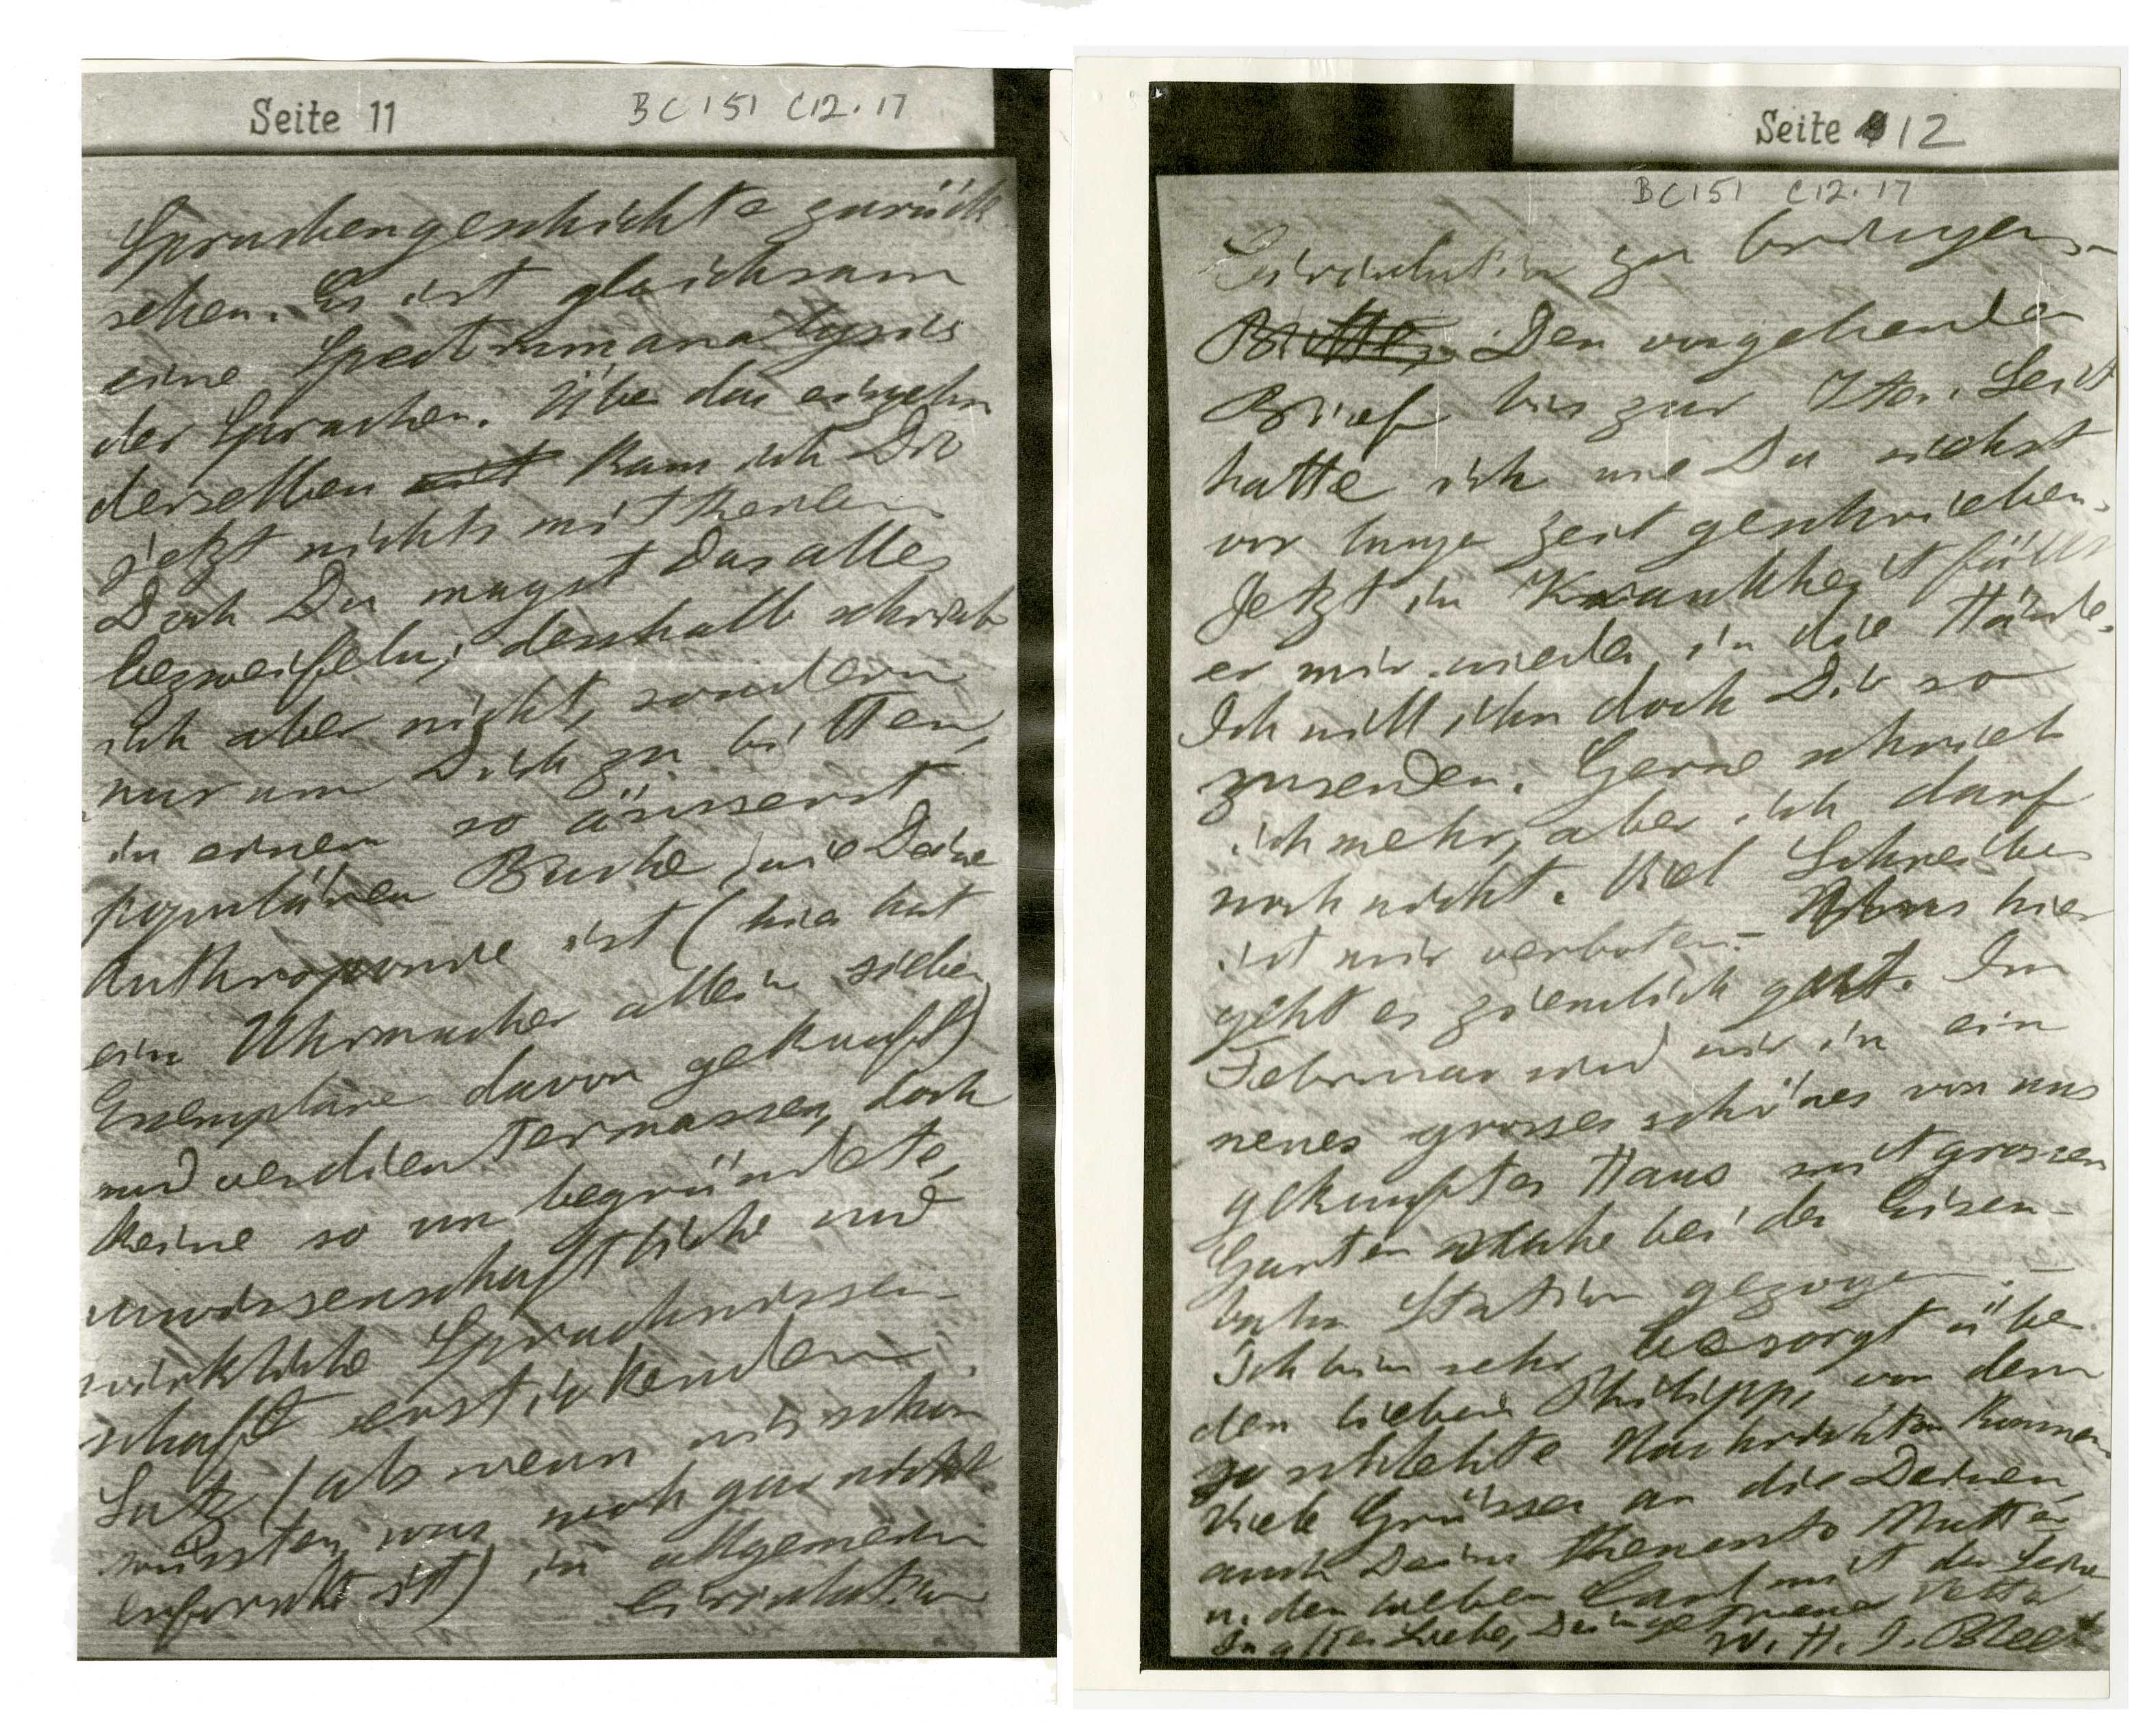 Seite 11
BC151 C12.17
Sprachengeschichte zurück
sehen. Es ist gleichsam
eine Spectrumanalysis
der Sprachen. Über das
derselben kann ich Dir
jetzt nichts mittheilen
Doch Du magst das alles
bezweifeln; desshalb schrieb
ich aber nicht, sondern
nur um Dich zu bitten,
in einem so äusserst
populären Buche wie Deine
ist (hier hat
ein Uhrmacher allein sieben
Exemplare davon gekauft)
und verdientermassen, doch
keine so unbegründete,
unwissenschaftliche und
wirkliche Sprachwissen-
schaft erstickenden
Satz (als wenn wir schon
wüssten, was noch gar nicht
erforscht ist) in allgemein
Circulation
Seite 12
BC151 C12.17
Circulation zu bringen
Den vorgehenden
Brief bis zur 7ten Seit
hatte ich wie Du siehst
vor lange Zeit geschrieben.
Jetzt in Krankheit fällt
er mir wieder in die Hände.
Ich will ihn doch Dir so
zusenden. Gerne schrieb
ich mehr, aber ich darf
noch nicht. Viel Schreiben
ist mir verboten. – Uns hier
geht es ziemlich gut. Im
Februar sind wir in ein
neues grosses schönes von uns
gekauftes Haus mit grossen
Garten nahe bei der Eisen-
bahn Station gezogen. –
Ich bin sehr besorgt über
den lieben Philipp, von dem
so schlechte Nachrichten kommen
Viele Grüsse an die Deinen,
auch Deine Mutter
u. den lieben Carl mit der
In alter Liebe, Dein getreuer Vetter
W. H. I. Bleek